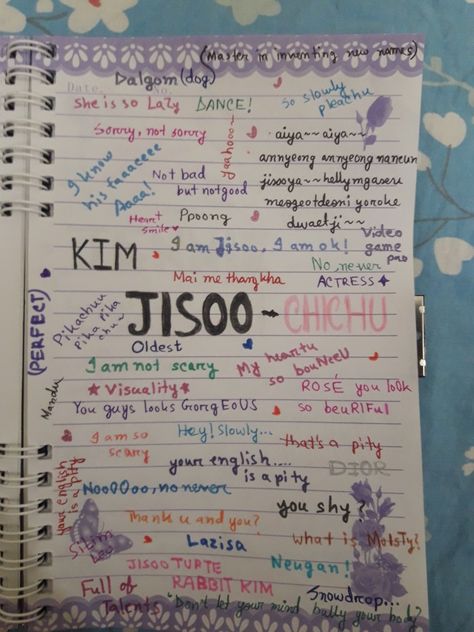 (Master in inventing new names)
Dalgom (dog)
Date. No.
she is so Lazy
DANCE!
So slowly
pikachu
Sorry, not sorry
yaahooo~~
aiya~~aiya~~
annyeong annyeong naneun
jisooya~~hellymgaseu
meogeotdeoni yoroke
dwaetji~~
I know
his faaaceee
Aaaa!
Not bad
but notgood
Heart
smile
Ppoong
Video
game
pro
KIM
I am Jisoo, I am ok!
No, never
Mai me thangkha
ACTRESS
(PERFECT)
Pikachuu
pika pika
chu~
JISOO - CHICHU
Oldest
I am not scary
My heartu
so bouNeeU
Mandu
Visuality
ROSÉ you look
so beuRIFul
You guys looks GorgEoUS
I am so
scary
Hey! Slowly...
that's a pity
your english
is a pity
your english....
is a pity
DIOR
NooOOoo, no never
you shy?
Thank u and you?
what is MotsTy?
Lazisa
JISOO TURTE
Neugan!
RABBIT KIM
Full of
Talents
Snowdrop...
"Don't let your mind bully your body"